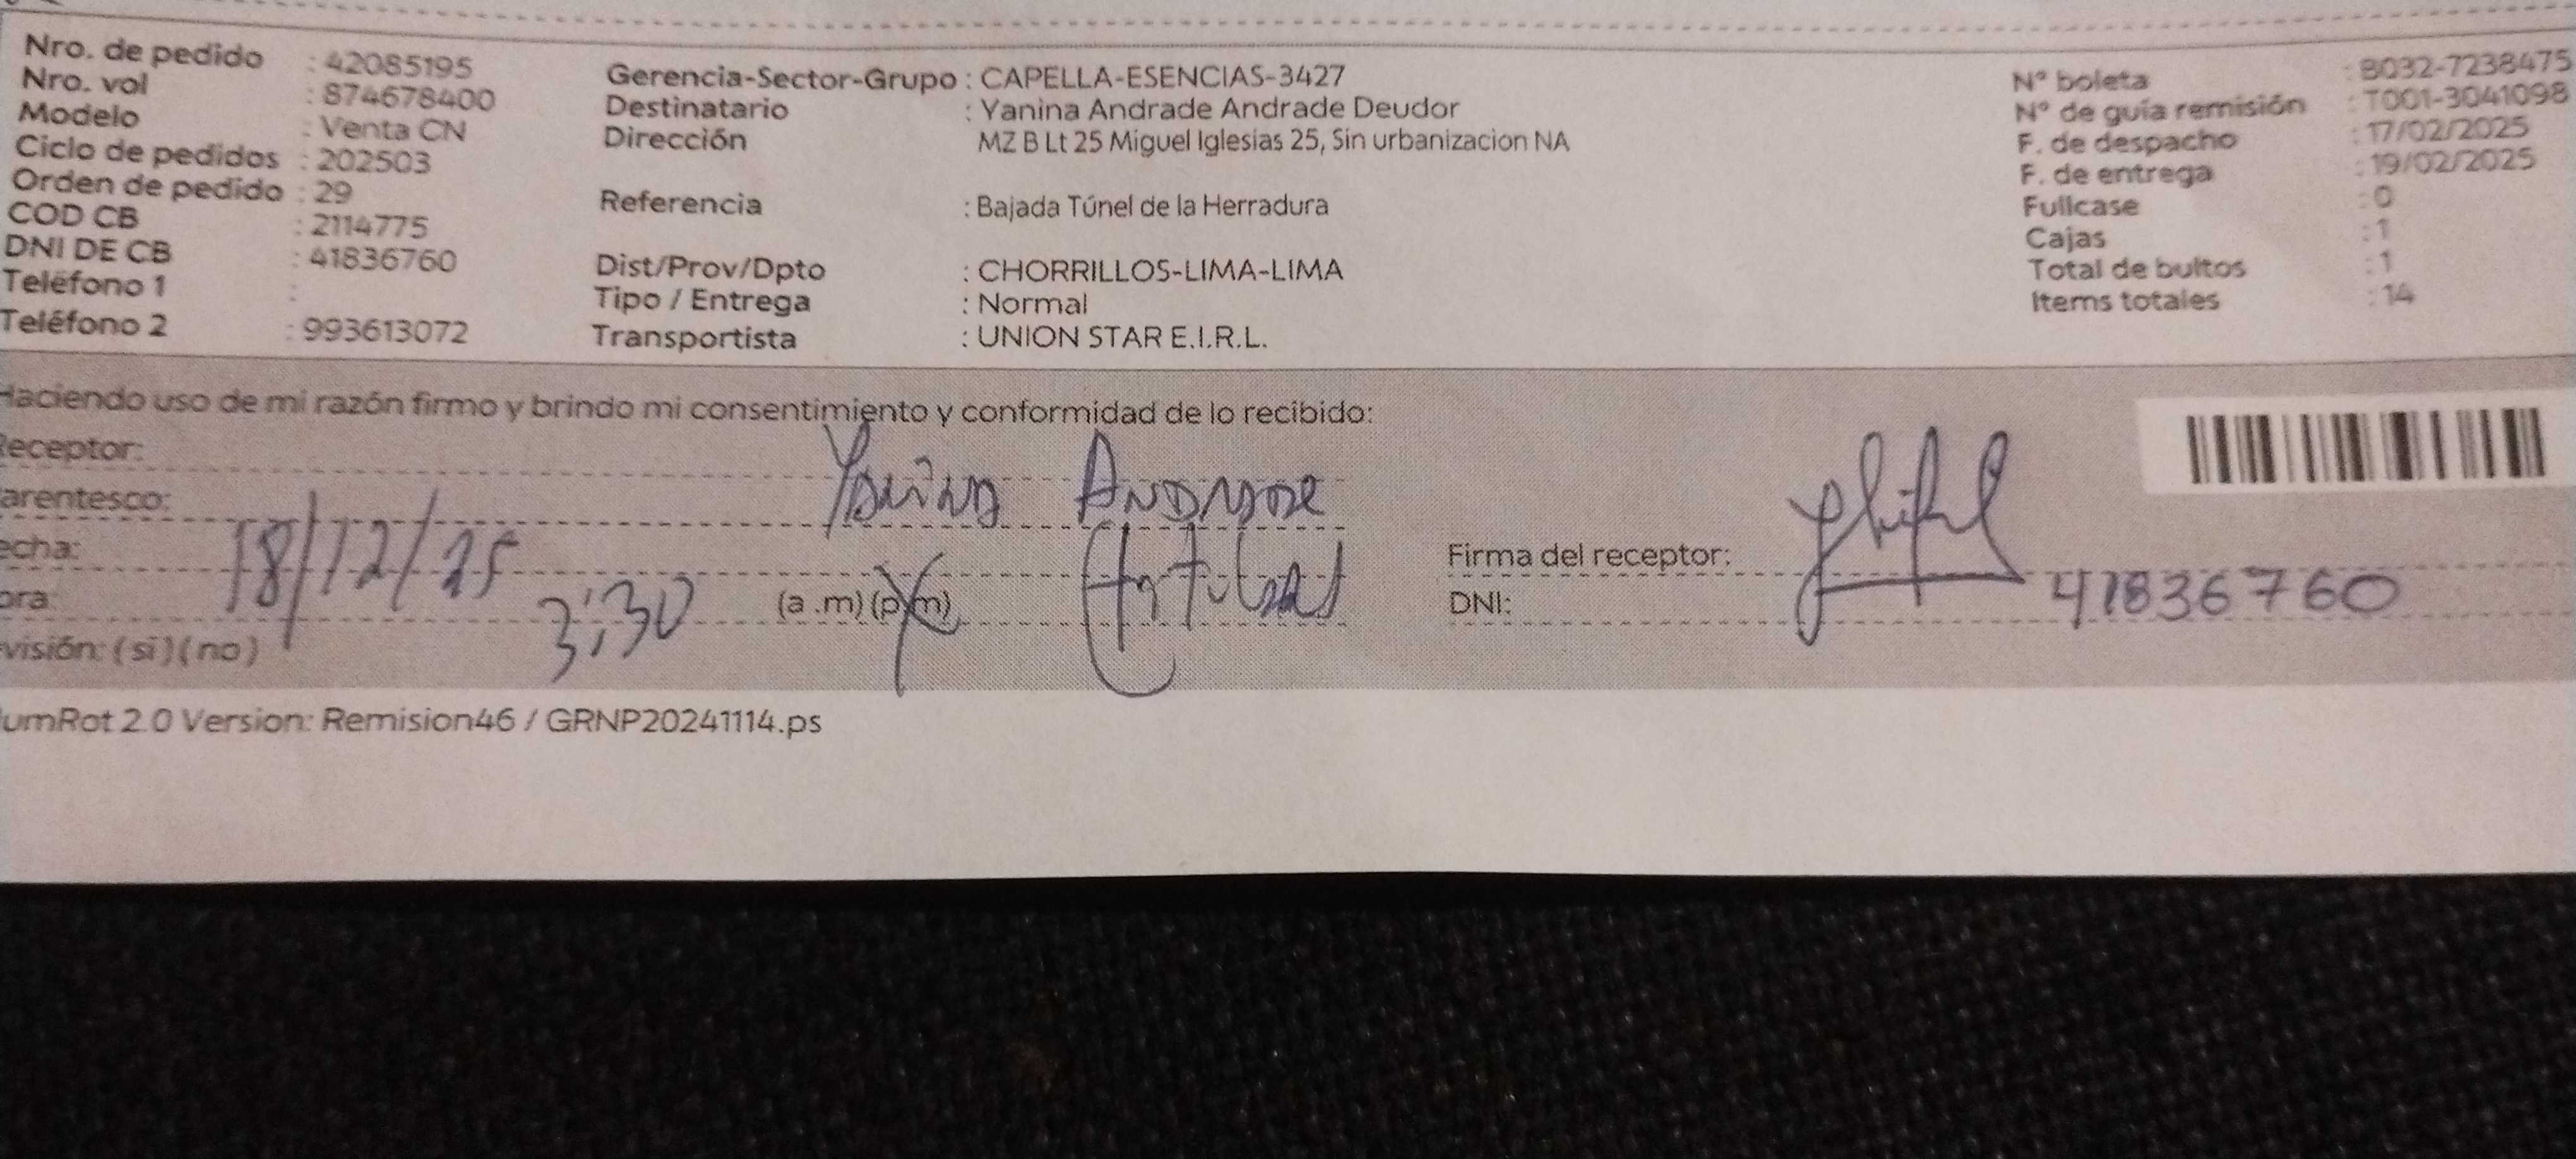 Nro. de pedido : 42085195
Nro. vol : 874678400
Modelo : Venta CN
Ciclo de pedidos : 202503
Orden de pedido : 29
COD CB : 2114775
DNI DE CB : 41836760
Teléfono 1 :
Teléfono 2 : 993613072
Gerencia-Sector-Grupo : CAPELLA-ESENCIAS-3427
Destinatario : Yanina Andrade Andrade Deudor
Dirección MZ B Lt 25 Miguel Iglesias 25, Sin urbanizacion NA
Referencia : Bajada Túnel de la Herradura
Dist/Prov/Dpto : CHORRILLOS-LIMA-LIMA
Tipo / Entrega : Normal
Transportista : UNION STAR E.I.R.L.
N° boleta : B032-7238475
N° de guía remisión : T001-3041098
F. de despacho : 17/02/2025
F. de entrega : 19/02/2025
Fullcase : 0
Cajas : 1
Total de bultos : 1
Items totales : 14
Haciendo uso de mi razón firmo y brindo mi consentimiento y conformidad de lo recibido:
Receptor: Yanina Andrade
arentesco:
echa: 18/12/25
ora: 3:30 (a .m) (p.m)
visión: (si) (no)
Firma del receptor:
DNI: 41836760
umRot 2.0 Version: Remision46 / GRNP20241114.ps